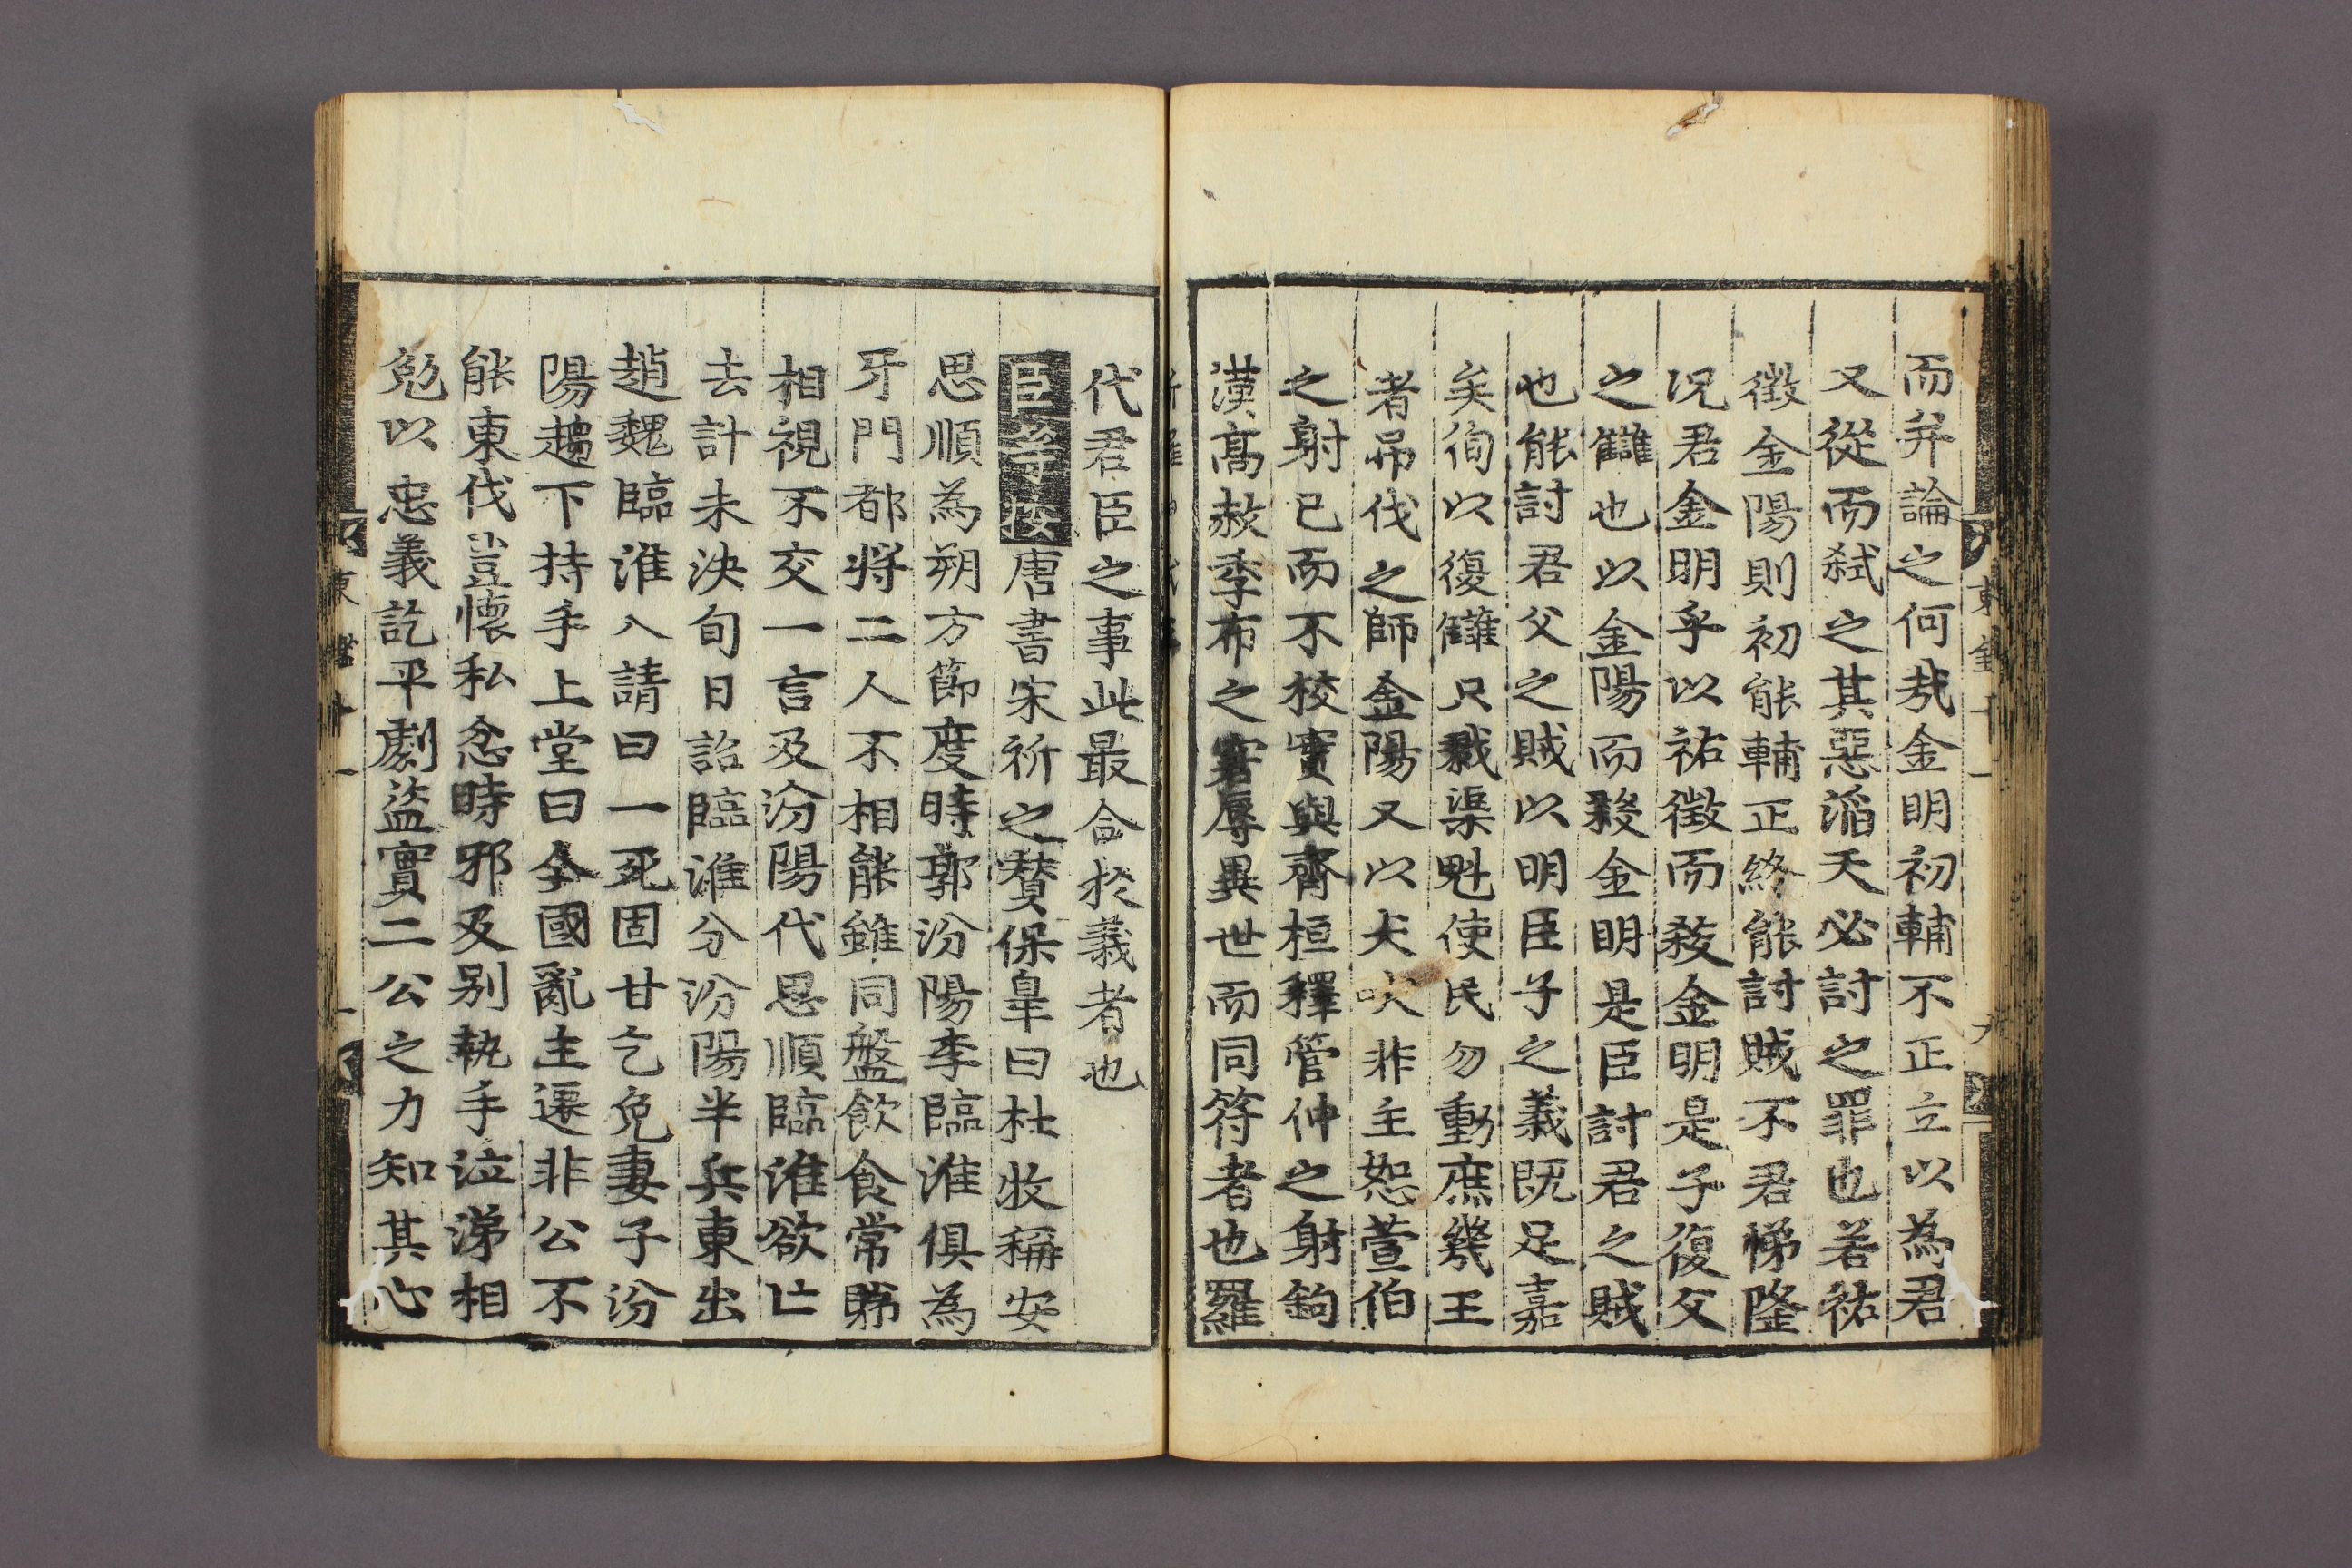 而弁論之何㢤金明初輔不正立以為君
又從而弑之其惡滔天必討之罪也若祐
徵金陽則初能輔正終能討賊不君悌隆
况君金明乎以祐徵而殺金明是子復父
之讎也以金陽而殺金明是臣討君之賊
也能討君父之賊以明臣子之義既足嘉
矣徇以復讎只戮渠魁使民勿動庶幾王
者吊伐之師金陽又以犬吠非主恕萱伯
之射已而不校實與齊桓釋管仲之射鉤
漢髙赦季布之窘辱異世而同符者也羅
代君臣之事此最合於義者也
臣等按唐書宋祈之賛保臯曰杜牧稱安
思順為朔方節度時郭汾陽李臨淮俱為
牙門都將二人不相能雖同盤飮食常睇
相視不交一言及汾陽代思順臨淮欲亡
去計未決旬日詔臨淮分汾陽半兵東出
趙魏臨淮入請曰一死固甘乞免妻子汾
陽趨下持手上堂曰今國亂主遷非公不
能東伐豈懷私忿時邪及别執手泣涕相
勉以忠義訖平劇盗實二公之力知其心